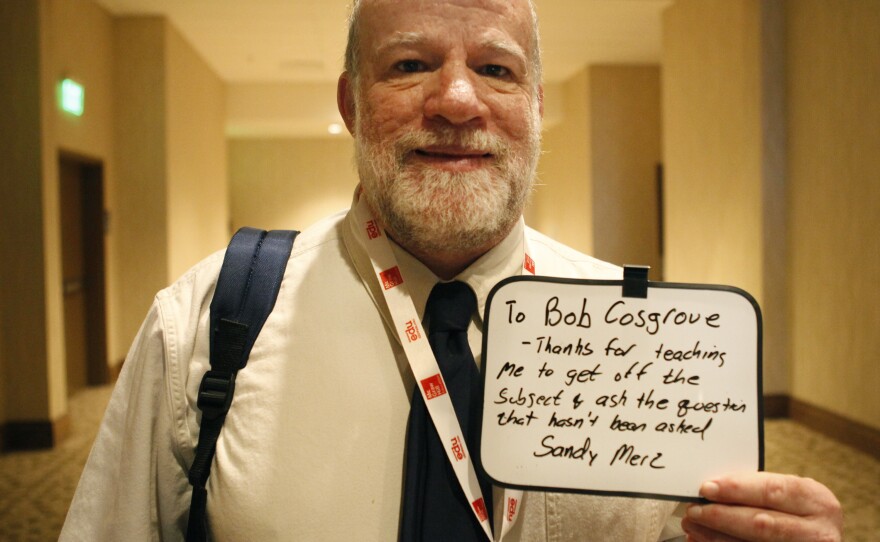 To Bob Cosgrove
- Thanks for teaching
me to get off the
subject & ask the question
that hasn't been asked
Sandy Merz